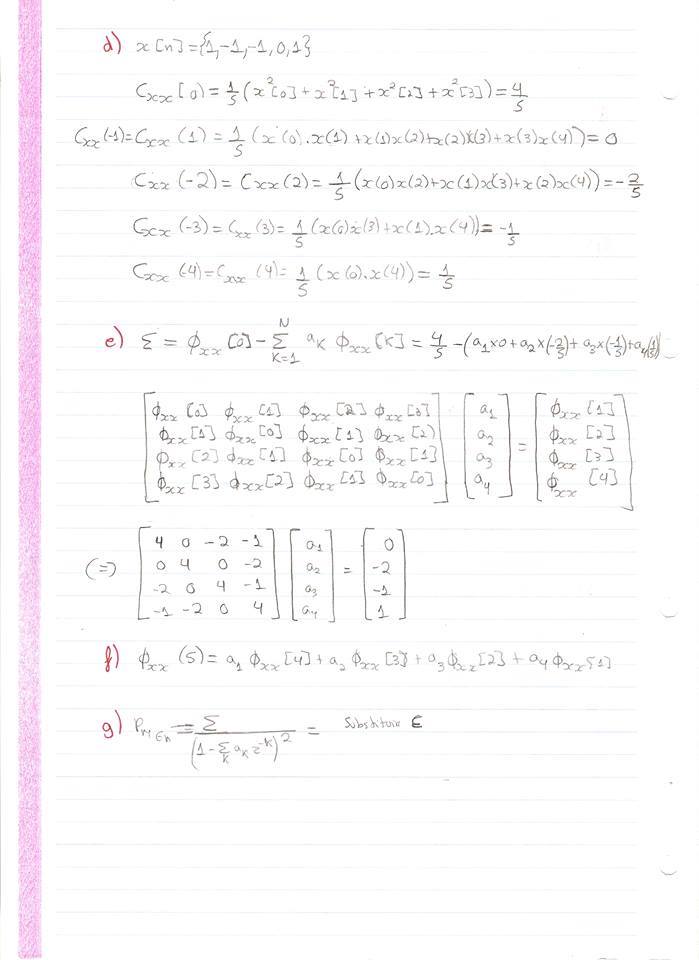 d) x[n]={1,-1,-1,0,1}
Cxx[0)=1/5(x²[0]+x²[1]+x²[2]+x²[3])=4/5
Cxx(-1)=Cxx(1)=1/5(x(0).x(1)+x(1)x(2)+x(2)x(3)+x(3)x(4))=0
Cxx(-2)=Cxx(2)=1/5(x(0)x(2)+x(1)x(3)+x(2)x(4))=-2/5
Cxx(-3)=Cxx(3)=1/5(x(0)x(3)+x(1).x(4))=-1/5
Cxx(-4)=Cxx(4)=1/5(x(0).x(4))=1/5
e) Σ=ϕxx[0]-Σ(K=1, N) aK ϕxx[K]=4/5-(a1×0+a2×(-2/5)+a3×(-1/5)+a4(1/5))
[ϕxx[0] ϕxx[1] ϕxx[2] ϕxx[3]] [a1] [ϕxx[1]]
[ϕxx[1] ϕxx[0] ϕxx[1] ϕxx[2]] [a2] = [ϕxx[2]]
[ϕxx[2] ϕxx[1] ϕxx[0] ϕxx[1]] [a3] [ϕxx[3]]
[ϕxx[3] ϕxx[2] ϕxx[1] ϕxx[0]] [a4] [ϕxx[4]]
[4 0 -2 -1] [a1] [0]
(=) [0 4 0 -2] [a2] = [-2]
[-2 0 4 -1] [a3] [-1]
[-1 -2 0 4] [a4] [1]
f) ϕxx(5)=a1ϕxx[4]+a2ϕxx[3]+a3ϕxx[2]+a4ϕxx[1]
g) = Σ/(1-Σk ak z^-k)² = Substituir ϵ